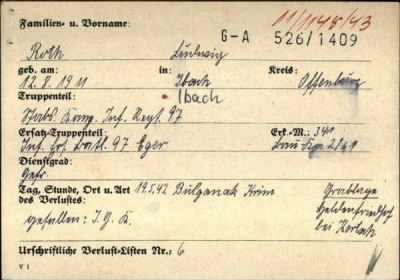 11/1148/43
Familien- u. Vorname: G-A 526/1409
Roth Ludwig
geb. am: in: Kreis:
12.8.1911 Ibach Offenburg
Truppenteil: Ibach
Stabs Komp. Inf. Regt. 97
Ersatz-Truppenteil: Erk.-M.: 341
Inf. Ers. Batl. 97 Eger
Dienstgrad:
Gefr.
Tag, Stunde, Ort u. Art 19.5.42 Bulganak Krim Grablage
des Verlustes: Heldenfriedhof
gefallen: I.G. K. bei Kertsch
Urschriftliche Verlust-Listen Nr.: 6
V 1